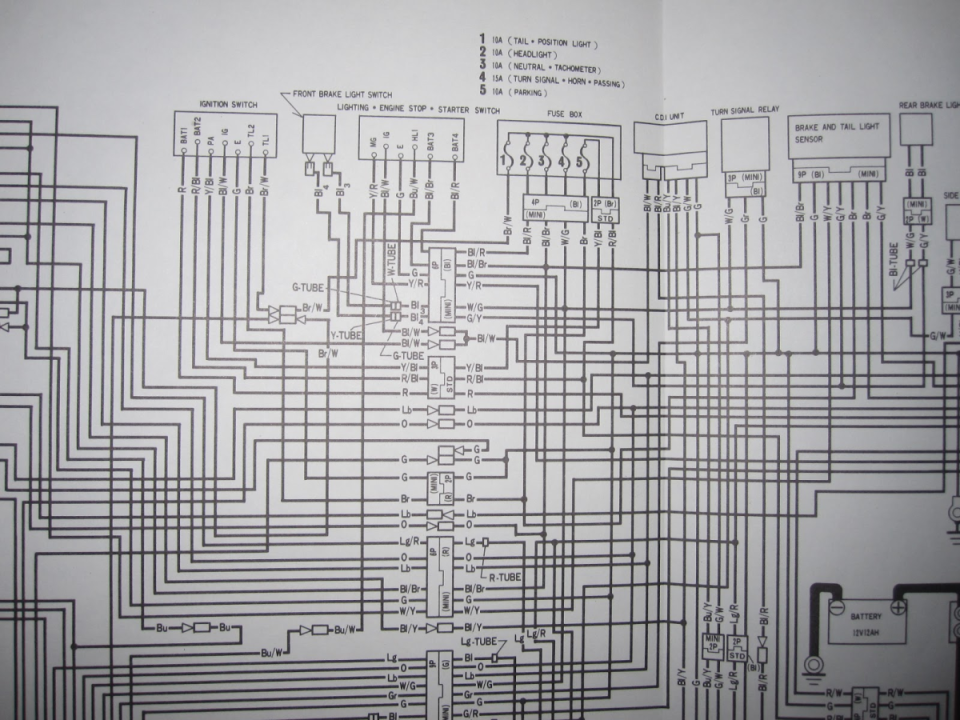 1 10A (TAIL • POSITION LIGHT)
2 10A (HEADLIGHT)
3 10A (NEUTRAL • TACHOMETER)
4 15A (TURN SIGNAL • HORN • PASSING)
5 10A (PARKING)
FRONT BRAKE LIGHT SWITCH
IGNITION SWITCH
LIGHTING • ENGINE STOP • STARTER SWITCH
FUSE BOX
CDI UNIT
TURN SIGNAL RELAY
REAR BRAKE LIGH
BRAKE AND TAIL LIGHT
SENSOR
BAT1 BAT2 PA IG E TL2 TL1
MG IG E HL1 BAT3 BAT4
1 2 3 4 5
R R/Bl Y/Bl Bl/W G Br Br/W
Bl 4 Bl 3
Y/R Bl/W G Bu/W Bl/Br Bl/R
4P (Bl) (MINI)
2P (Br) STD
3P (MINI) (Bl)
9P (Bl) (MINI)
(MINI) 2P (W)
SIDE
Br/W Bl/R Bl/Br W/G Br Y/Bl R/Bl
W/G Gr G
Bl Bl
W/G G/Y
Bl-TUBE
G/W
W-TUBE
G-TUBE
Y-TUBE
G-TUBE
Br/W
Br/W
Bl/R
Bl/Br
G
Y/R
W/G
G/Y
Bl/W
Bl/W Bl/W
Y/Bl Y/Bl
R/Bl R/Bl
R R
3P (W) STD
Lb Lb
O O
G G
G G
(MINI) 2P (R)
Br Br
Lb Lb
O O
Lg/R Lg
O O
Lb Lb
R-TUBE
Bl/Br Bl/Br
G G
W/Y W/Y
Bl/Y Bl/Y
Bu Bu
Bu/W Bu/W
Lg-TUBE
Lg Lg/R
Lg Bl
O O
Lb Lb
W/G W/G
Gr Gr
Bl G/R
Bu/Y G/W Lg/R Bl/R
MINI 2P
2P STD (Bl)
Bl/Y G Bu/Y G/W Lg/R Bl/R
BATTERY
12V12AH
R/W R/W
G G